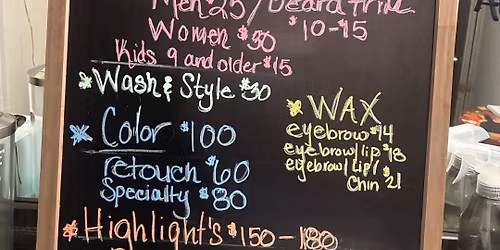 Men 25 / Beard trim
Women $30 $10-15
Kids 9 and older $15
Wash & Style $30
WAX
Color $100
eyebrow $14
eyebrow/lip $18
retouch $60
eyebrow/lip/
Chin $21
Specialty $80
Highlight's $150 - 180